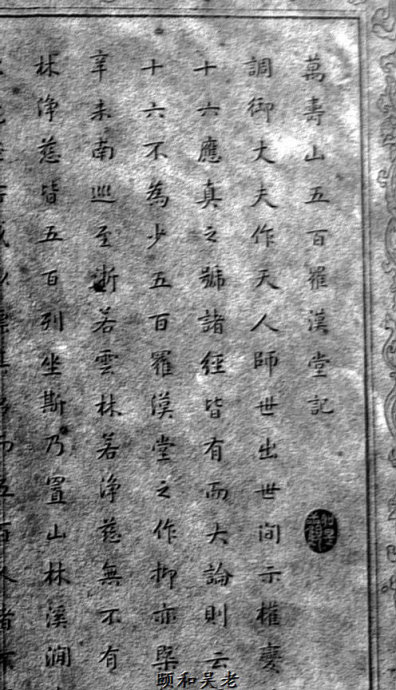 萬壽山五百羅漢堂記
調御丈夫作天人師世出世間示權
十六應真之號諸經皆有而大論則云
十六不為少五百羅漢堂之作抑亦
辛未南巡至浙若雲林若淨慈無不有
林淨慈皆五百列坐斯乃置山林溪澗
颐和吴老